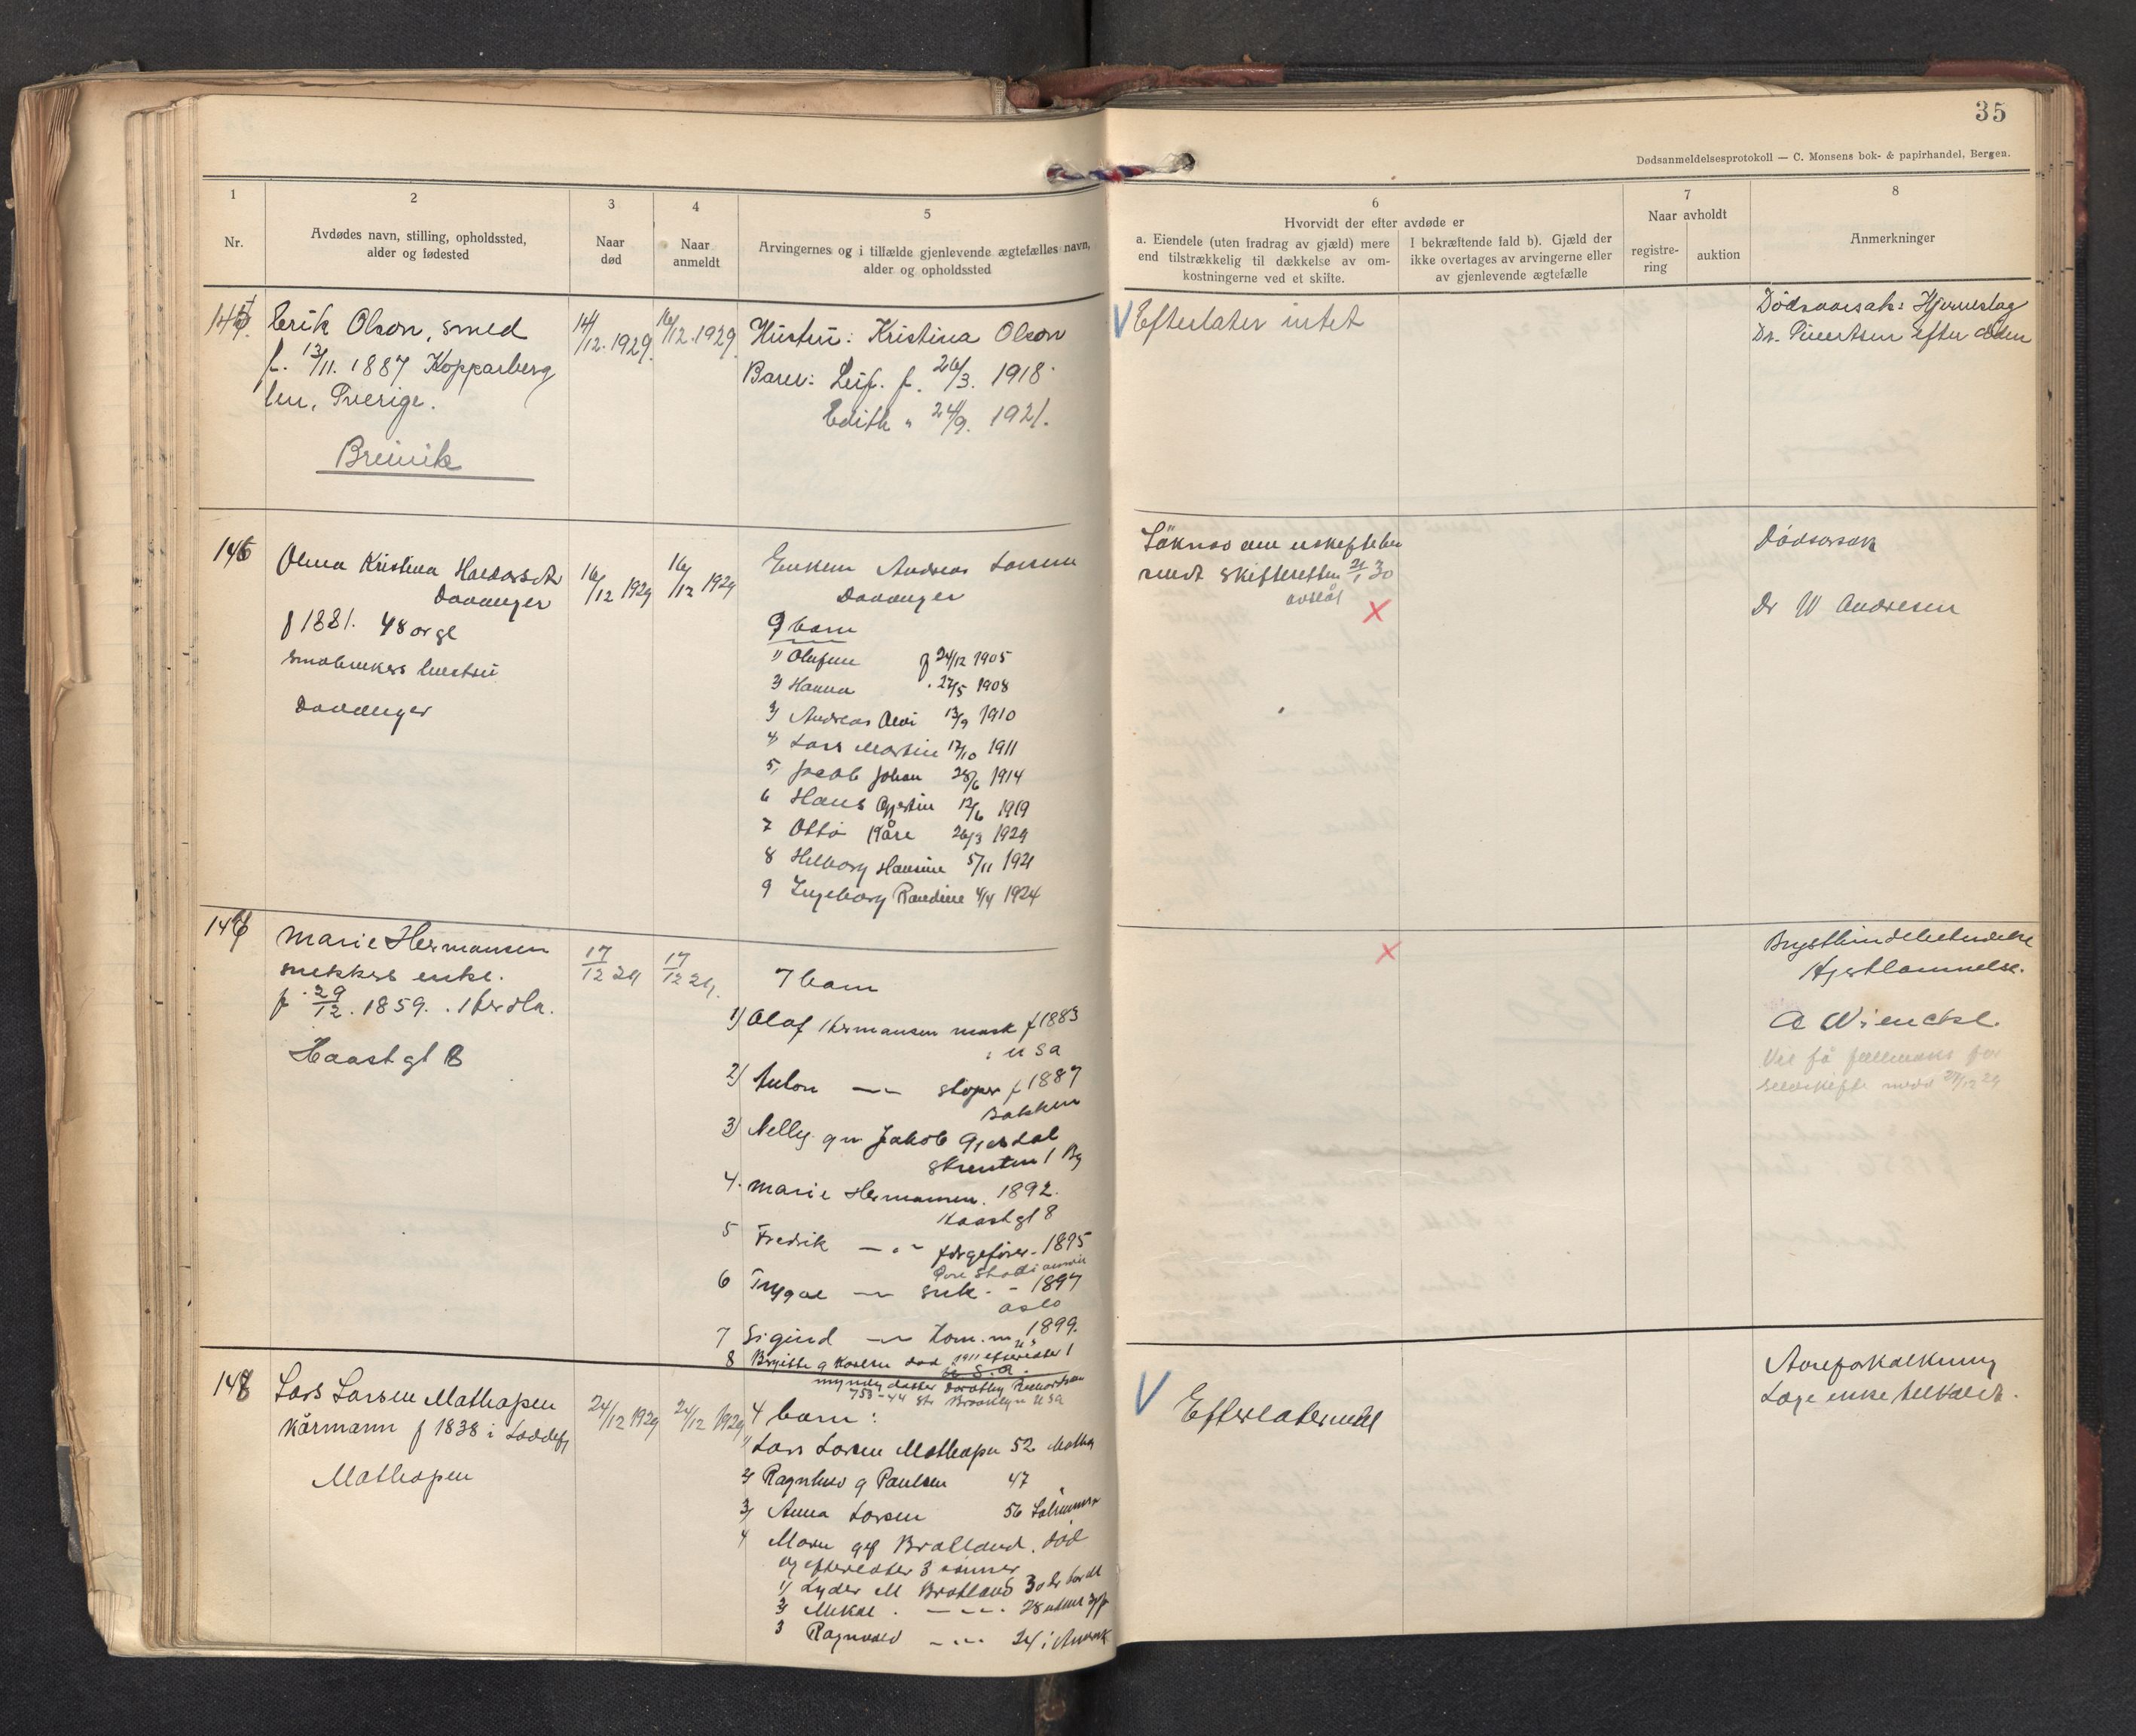 35
Dødsanmeldelsesprotokoll — C. Monsens bok- & papirhandel, Bergen.
1
Nr.
2
Avdødes navn, stilling, opholdssted,
alder og fødested
3
Naar
død
4
Naar
anmeldt
5
Arvingernes og i tilfælde gjenlevende ægtefælles navn,
alder og opholdssted
6
Hvorvidt der efter avdøde er
a. Eiendele (uten fradrag av gjæld) mere
end tilstrækkelig til dækkelse av om-
kostningerne ved et skifte.
I bekræftende fald b). Gjæld der
ikke overtages av arvingerne eller
av gjenlevende ægtefælle
7
Naar avholdt
registre-
ring
auktion
8
Anmerkninger
145
Erik Olson, smed
f. 13/11. 1887 Kopparberg
len, Sverige.
Breivik
14/12. 1929.
16/12. 1929.
Hustru: Kristina Olson
Barn: Leif. f. 26/3. 1918.
Edith " 24/9. 1921.
Efterlater intet
Dødsaarsak: Hjerneslag
146
Kristina
f 1881. 48 år gl
småbrukers hustru
16/12 1929
16/12 1929
Enkem Andreas Larsen
9 barn
1) f 24/12 1905
Hanna 27/5 1908
3) Andreas 13/9 1910
4) Lars Martin 17/10 1911
5) Jacob Johan 28/6 1914
6 Hans 12/6 1919
7 Otto Kåre
8 Hansine 5/11 1921
9 Ingeborg Randine 4/4 1924
skifteretten 21/1 30
avslåt
X
Dødsorsak
Dr W Andresen
Marie Hermansen
snekkers enke.
f. 29/12. 1859. Herdla.
Haastgt 8
17/12 29
17/12 29.
7 barn
1) Olaf Hermansen mask f 1883
i USA
2) Anton — stoper f 1887
Bakken
3) Nelly g m Jakob Gjerdal
4. Marie Hermansen. 1892.
Haastgt 8
5 Fredrik — " — 1895
6 Trygve — snek. - 1897
Oslo
7 Sigurd — 1899.
8 død 1911 efterlater 1
U.S.A.
myndig datter Dorothy
753 - 44 str Brooklyn USA
X
Hjertelammelse.
148
Lars Larsen Mathopen
Kårmann f 1838 i
Mathopen
24/12 1929
24/12 1929
4 barn:
1) Lars Larsen Mathopen 52
2) Ragnhild g Paulsen 47
3) Anna Larsen 56
4 gift Bratland. død
og efterlater 3 sønner
1) Lyder M Bratland 30 år
2) Mikal — 28
3 Ragnvald — 24 i
Efterlater intet
Aareforkalkning
Læge ikke tilkaldt.